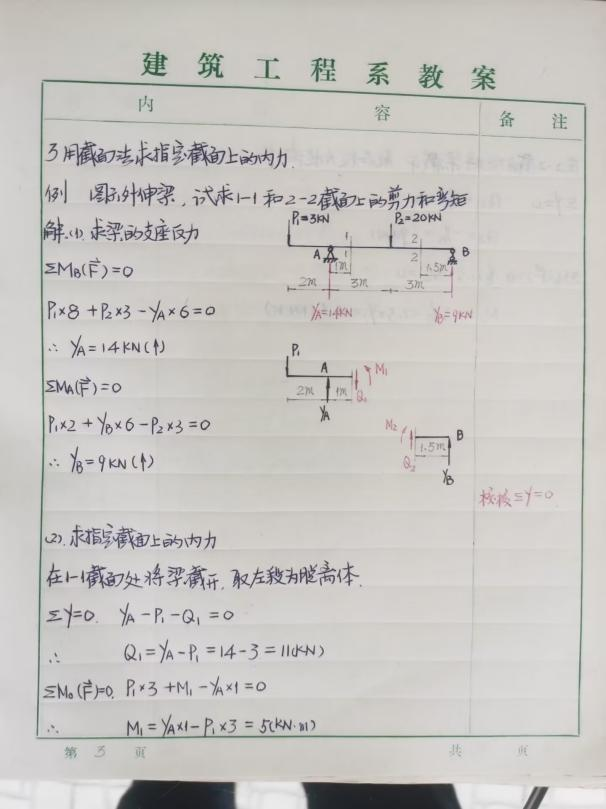 建筑工程系教案
内 容 备 注
3 用截面法求指定截面上的内力.
例 图示外伸梁, 试求1-1和2-2截面上的剪力和弯矩
P₁=3KN P₂=20KN
解.(1). 求梁的支座反力
A 1 1 2 2 B
1m 1.5m
2m 3m 3m
ΣMB(F⃗)=0
YA=14KN YB=9KN
P₁×8+P₂×3-YA×6=0
∴ YA=14KN(↑)
P₁ A M₁
2m 1m Q₁
YA
ΣMA(F⃗)=0
P₁×2+YB×6-P₂×3=0
M₂ B
1.5m
Q₂ YB
∴ YB=9KN(↑)
核校ΣY=0
(2). 求指定截面上的内力
在1-1截面处将梁截开, 取左段为脱离体.
ΣY=0. YA-P₁-Q₁=0
∴ Q₁=YA-P₁=14-3=11(KN)
ΣM₀(F⃗)=0. P₁×3+M₁-YA×1=0
∴ M₁=YA×1-P₁×3=5(KN·m)
第 3 页 共 页